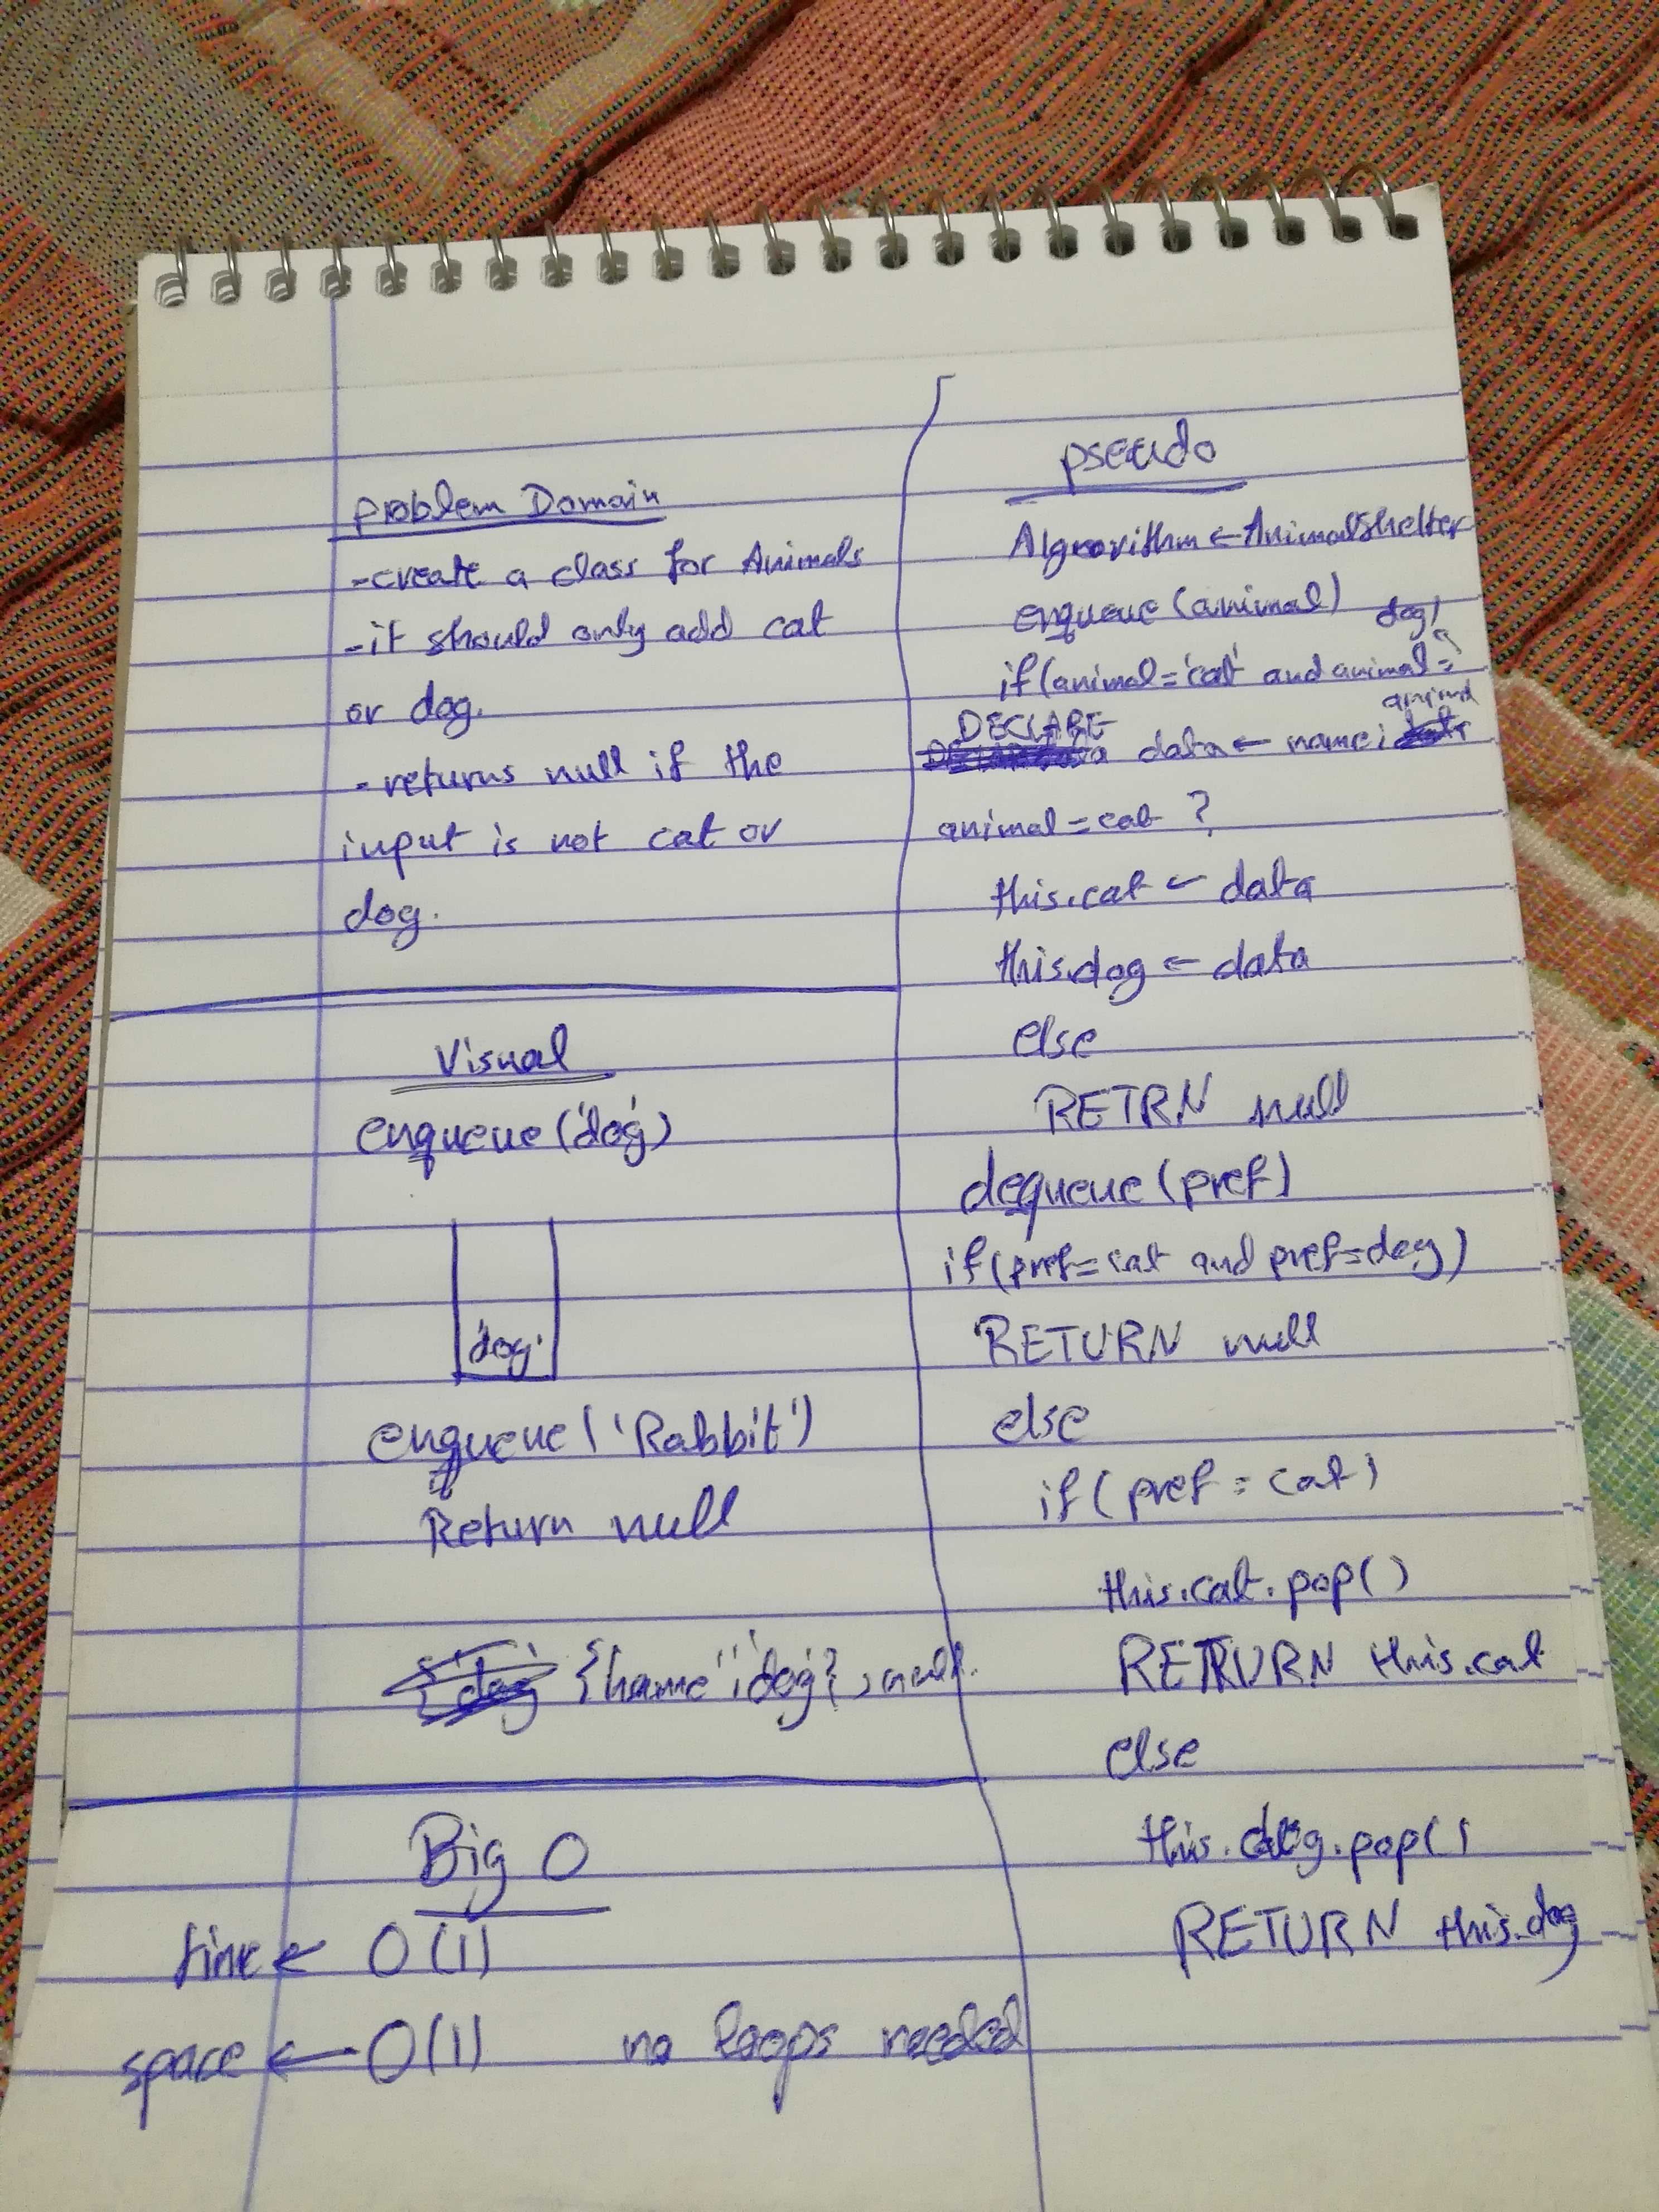 problem Domain
-create a class for Animals
-it should only add cat
or dog.
-returns null if the
input is not cat or
dog.
Visual
enqueue('dog')
'dog'
enqueue('Rabbit')
Return null
{name:'dog'}, null.
Big O
time ← O(1)
space ← O(1) no loops needed
pseudo
Algorithm ← AnimalShelter
enqueue(animal)
if(animal='cat' and animal='dog'
DECLARE data ← name: animal
animal=cat ?
this.cat ← data
this.dog ← data
else
RETRN null
dequeue(pref)
if(pref=cat and pref=dog)
RETURN null
else
if(pref=cat)
this.cat.pop()
RETURN this.cat
else
this.dog.pop()
RETURN this.dog